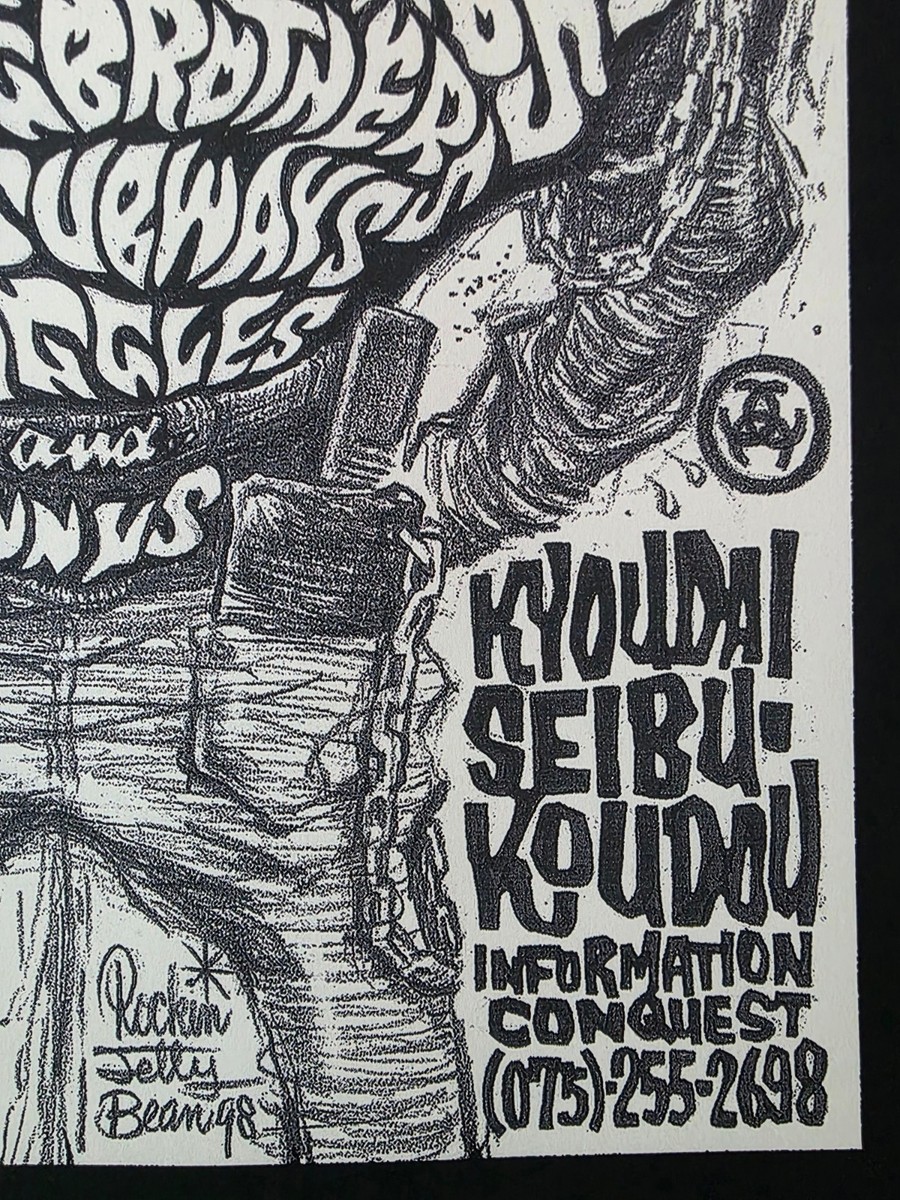 BROTHERS
SUBWAYS
GGLES
and
KYOUDAI
SEIBU-
KOUDOU
INFORMATION
CONQUEST
(075)-255-2698
Rockin
Jelly
Bean 98